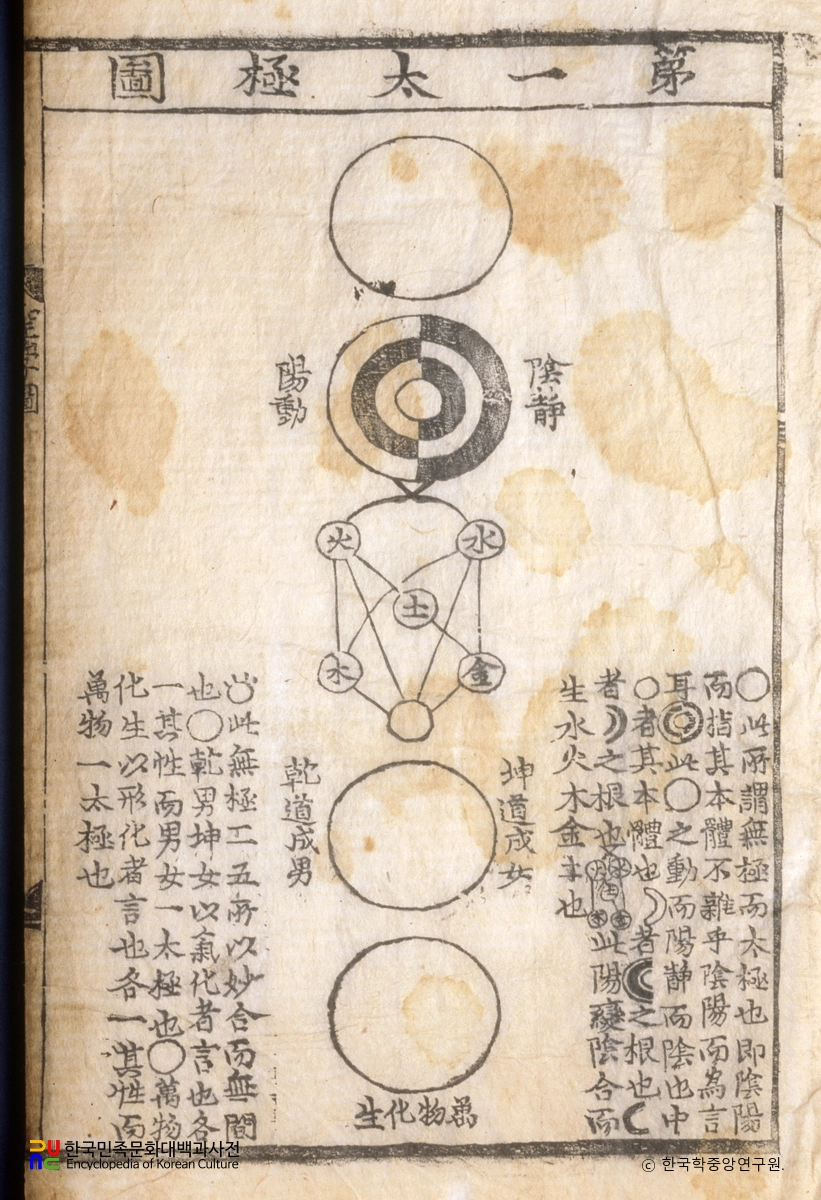 第一太極圖
陰靜
陽動
火
水
土
木
金
坤道成女
乾道成男
萬物化生
○此所謂無極而太極也即陰陽
而指其本體不雜乎陰陽而為言
耳◎此○之動而陽靜而陰也中
○者其本體也☽者☾之根也☾
者☽之根也此陽變陰合而
生水火木金土也
此無極二五所以妙合而無間
也○乾男坤女以氣化者言也各
一其性而男女一太極也○萬物
化生以形化者言也各一其性而
萬物一太極也
한국민족문화대백과사전
Encyclopedia of Korean Culture
© 한국학중앙연구원.